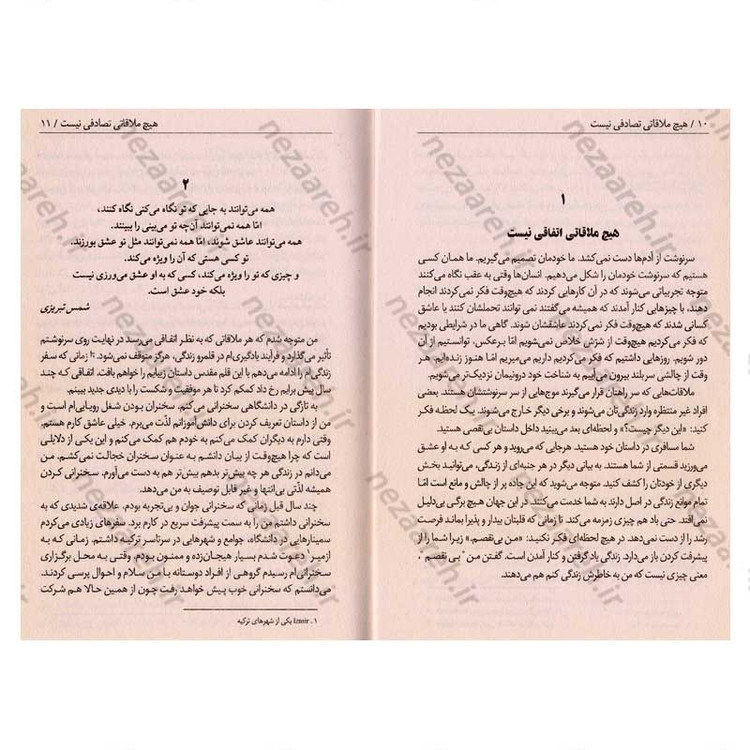 ۱۰ / هیچ ملاقاتی تصادفی نیست
۱
هیچ ملاقاتی اتفاقی نیست
سرنوشت از آدم‌ها دست نمی‌کشد. ما خودمان تصمیم می‌گیریم. ما همان کسی
هستیم که سرنوشت خودمان را شکل می‌دهیم. انسان‌ها وقتی به عقب نگاه می‌کنند
متوجه تجربیاتی می‌شوند که در آن کارهایی کردند که هیچ‌وقت فکر نمی‌کردند انجام
دهند، با چیزهایی کنار آمدند که همیشه می‌گفتند نمی توانند تحملشان کنند یا عاشق
کسانی شدند که هیچ‌وقت فکر نمی‌کردند عاشقشان شوند. گاهی ما در شرایطی بودیم
که فکر می‌کردیم هیچ‌وقت از شرّش خلاص نمی‌شویم امّا برعکس، توانستیم از آن
دور شویم. روزهایی داشتیم که فکر می‌کردیم داریم می‌میریم امّا هنوز زنده‌ایم. هر
وقت از چالشی سربلند بیرون می‌آییم به شناخت خود درونیمان نزدیک‌تر می‌شویم.
ملاقات‌هایی که سر راهتان قرار می‌گیرند موج‌هایی از سر سرنوشتتان هستند. بعضی
افراد غیر منتظره وارد زندگی‌تان می‌شوند و برخی دیگر خارج می‌شوند. یک لحظه فکر
کنید: «این دیگر چیست؟» و لحظه‌ای بعد می‌بینید داخل داستان بی‌نقصی هستید.
شما مسافری در داستان خود هستید. هرجایی که می‌روید و هر کسی که به او عشق
می‌ورزید قسمتی از شما هستند. به بیانی دیگر در هر جنبه‌ای از زندگی، می‌توانید بخش
دیگری از خودتان را کشف کنید. متوجه می‌شوید که این جاده پر از چالش و مانع است امّا
تمام موانع زندگی در اصل دارند به شما خدمت می‌کنند. در این جهان هیچ برگی بی‌دلیل
نمی‌افتد. حتی باد هم چیزی زمزمه می‌کند. تا زمانی که قلبتان بیدار و پذیرا بماند فرصت
رشد را از دست نمی‌دهد. در هیچ لحظه‌ای فکر نکنید: «من بی‌نقصم.» زیرا شما را از
پیشرفت کردن باز می‌دارد. زندگی یاد گرفتن و کنار آمدن است. گفتن من "بی نقصم"،
معنی چیزی نیست که من به خاطرش زندگی کنم هم می‌دهند.
هیچ ملاقاتی تصادفی نیست / ۱۱
۲
همه می‌توانند به جایی که تو نگاه می‌کنی نگاه کنند،
امّا همه نمی‌توانند آن‌چه تو می‌بینی را ببینند.
همه می‌توانند عاشق شوند، امّا همه نمی‌توانند مثل تو عشق بورزند.
تو کسی هستی که آن را ویژه می‌کند.
و چیزی که تو را ویژه می‌کند، کسی که به او عشق می‌ورزی نیست
بلکه خود عشق است.
شمس تبریزی
من متوجه شدم که هر ملاقاتی که به نظر اتفاقی می‌رسد در نهایت روی سرنوشتم
تأثیر می‌گذارد و فرآیند یادگیری‌ام در قلمرو زندگی، هرگز متوقف نمی‌شود. تا زمانی که سفر
زندگی‌ام را ادامه می‌دهم با این قلم مقدس داستان زیبایم را خواهم بافت. اتفاقی که چند
سال پیش برایم رخ داد کمکم کرد تا هر موفقیت و شکست را با دیدی جدید ببینم.
به تازگی در دانشگاهی سخنرانی می‌کنم. سخنران بودن شغل رویایی‌ام است و
من از داستان تعریف کردن برای دانش‌آموزانم لذّت می‌برم. خیلی عاشق کارم هستم.
وقتی دارم به دیگران کمک می‌کنم به خودم هم کمک می‌کنم و این یکی از دلایلی
است که چرا هیچ‌وقت از بیان دانشم به عنوان سخنران خجالت نمی‌کشم. من
می‌دانم در زندگی هر چه بیش‌تر بدهم بیش‌تر هم به دست می‌آورم. سخنرانی کردن
همیشه لذّتی بی‌انتها و غیر قابل توصیف به من می‌دهد.
چند سال قبل زمانی که سخنرانی جوان و بی‌تجربه بودم. علاقه‌ی شدیدی که به
سخنرانی داشتم من را به سمت پیشرفت سریع در کارم برد. سفرهای زیادی می‌کردم
سمینارهایی در دانشگاه، جوامع و شهرهایی در سرتاسر ترکیه داشتم. زمانی که به
ازمیر۱ دعوت شدم بسیار هیجان‌زده و ممنون بودم. وقتی به محل برگزاری
سخنرانی‌ام رسیدم گروهی از افراد دوستانه با من سلام و احوال پرسی کردند.
می‌دانستم که سخنرانی خوب پیش خواهد رفت چون از همین حالا هم شرکت
۱. Izmir یکی از شهرهای ترکیه
nezaareh.ir